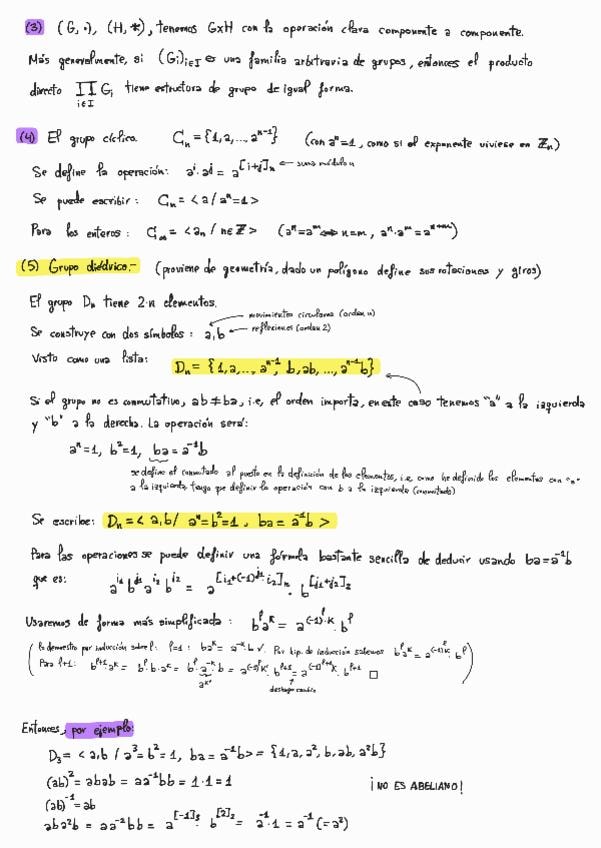 (3) (G, ·), (H, *), tenemos G×H con la operación clara componente a componente.
Más generalmente, si (Gᵢ)ᵢ∈I es una familia arbitraria de grupos, entonces el producto
directo ∏ Gᵢ tiene estructura de grupo de igual forma.
i∈I
(4) El grupo cíclico. Cₙ = {1, a, ..., aⁿ⁻¹} (con aⁿ=1, como si el exponente viviese en ℤₙ)
Se define la operación: aⁱ·aʲ = a^[i+j]ₙ ← suma módulo n
Se puede escribir: Cₙ = < a / aⁿ = 1 >
Para los enteros: C∞ = < aₙ / n∈ℤ > (aⁿ=aᵐ ⇔ n=m, aⁿ·aᵐ = aⁿ⁺ᵐ)
(5) Grupo diédrico.- (proviene de geometría, dado un polígono define sus rotaciones y giros)
El grupo Dₙ tiene 2·n elementos.
movimientos circulares (orden n)
Se construye con dos símbolos: a, b ← reflexiones (orden 2)
Visto como una lista: Dₙ = {1, a, ..., aⁿ⁻¹, b, ab, ..., aⁿ⁻¹b}
Si el grupo no es conmutativo, ab ≠ ba, i.e, el orden importa, en este caso tenemos "a" a la izquierda
y "b" a la derecha. La operación será:
aⁿ=1, b²=1, ba = a⁻¹b
se define el conmutado al puesto en la definición de los elementos, i.e. como he definido los elementos con "a"
a la izquierda, tengo que definir la operación con b a la izquierda (conmutado)
Se escribe: Dₙ = < a, b / aⁿ=b²=1, ba = a⁻¹b >
Para las operaciones se puede definir una fórmula bastante sencilla de deducir usando ba=a⁻¹b
que es: a^i₁ b^j₁ a^i₂ b^j₂ = a^[i₁+(-1)^j₁ i₂]ₙ · b^[j₁+j₂]₂
Usaremos de forma más simplificada: b^l a^k = a^(-1)^l·k · b^l
(lo demuestro por inducción sobre l: l=1: ba^k = a^-k·b ✓. Por hip. de inducción sabemos b^l a^k = a^(-1)^l k · b^l
Para l+1: b^l+1 a^k = b^l·b·a^k = b^l·a^-k·b = a^(-1)^l(-k)·b^l+1 = a^(-1)^l+1 k·b^l+1 □)
a^k'
deshago cambio
Entonces, por ejemplo:
D₃ = < a, b / a³=b²=1, ba = a⁻¹b > = {1, a, a², b, ab, a²b}
(ab)² = abab = aa⁻¹bb = 1·1 = 1 ¡NO ES ABELIANO!
(ab)⁻¹ = ab
aba²b = aa⁻²bb = a^[-1]₃ · b^[2]₂ = a⁻¹·1 = a⁻¹ (=a²)